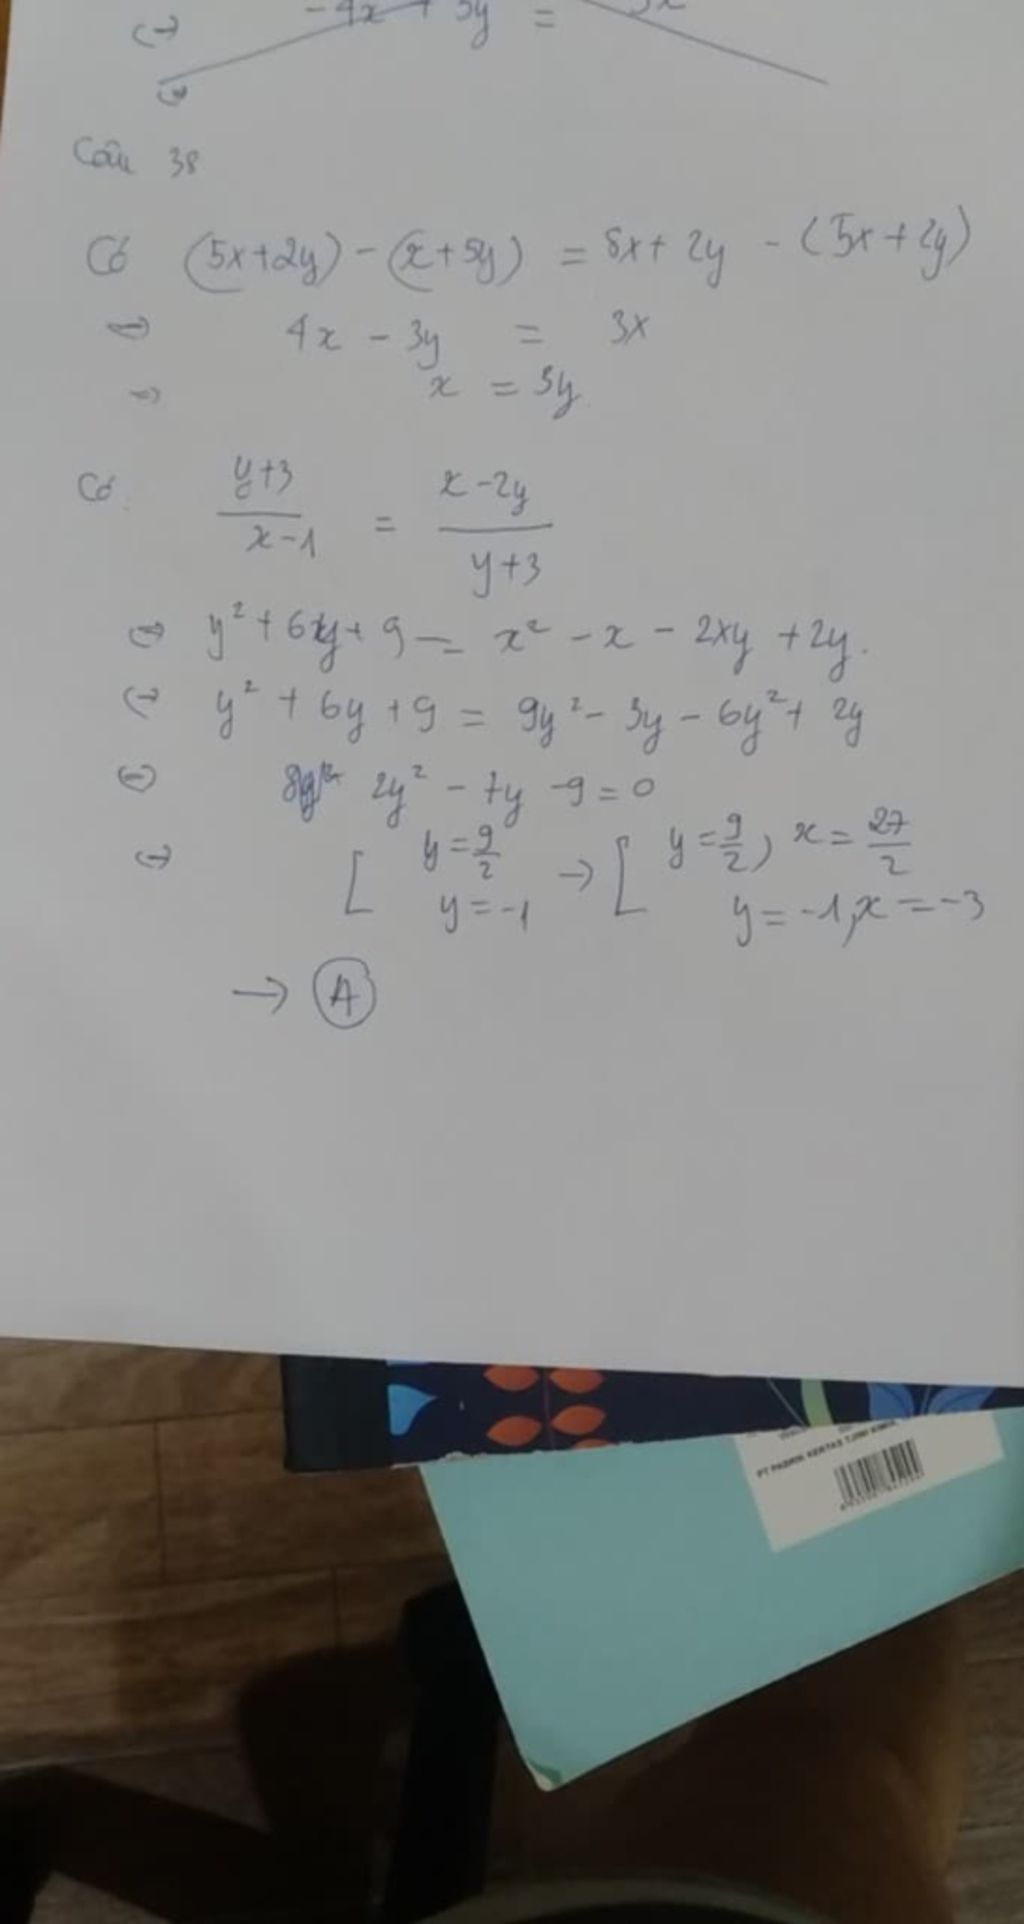 (→ -4x + 3y =
Câu 38
Có (5x+2y) - (x+5y) = 8x + 2y - (5x+2y)
⇔ 4x - 3y = 3x
⇒ x = 3y.
Có. y+3 / x-1 = x-2y / y+3
⇔ y² + 6y + 9 = x² - x - 2xy + 2y.
(→ y² + 6y + 9 = 9y² - 3y - 6y² + 2y
⇔ 2y² - 7y - 9 = 0
(→ [ y = 9/2 → [ y = 9/2, x = 27/2
y = -1 y = -1, x = -3
→ A
PT PABRIK KERTAS TJIWI KIMIA